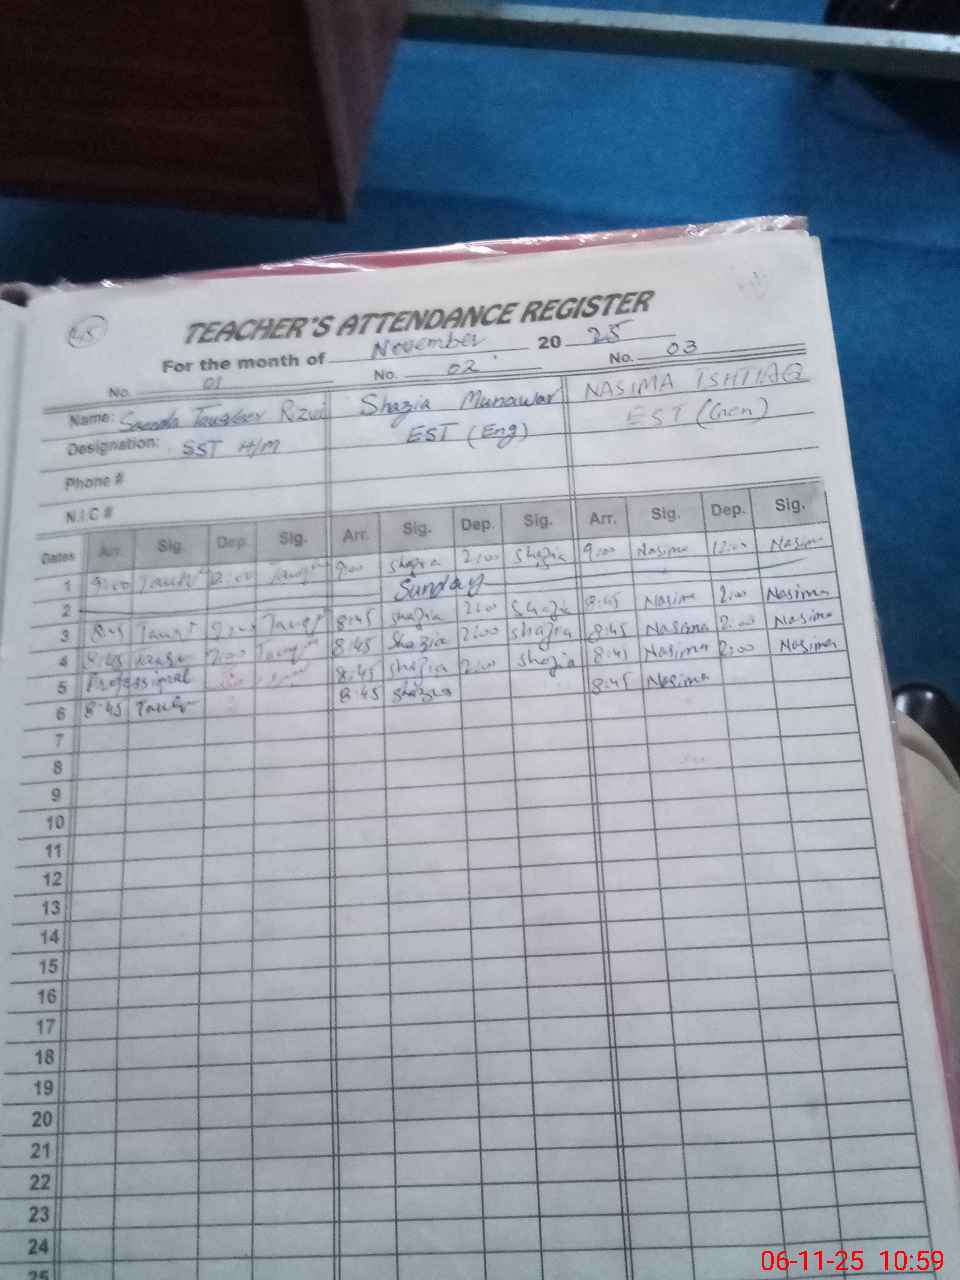 45
TEACHER'S ATTENDANCE REGISTER
For the month of November 20 25
No. 01 No. 02 No. 03
Name: Rizvi Shazia Munawar NASIMA ISHTIAQ
Designation: SST H/M EST (Eng) EST (Gen)
Phone #
N.I.C #
Dates Arr. Sig. Dep. Sig. Arr. Sig. Dep. Sig. Arr. Sig. Dep. Sig.
1 9:00 9:00 Shazia 2:00 Shazia 9:00 Nasima 12:00 Nasima
2 Sunday
3 8:45 8:45 Shazia 2:00 Shazia 8:45 Nasima 2:00 Nasima
4 8:45 2:00 8:45 Shazia 2:00 Shazia 8:45 Nasima 2:00 Nasima
5 Professional 8:45 Shazia 2:00 Shazia 8:45 Nasima 2:00 Nasima
6 8:45 8:45 Shazia 8:45 Nasima
7
8
9
10
11
12
13
14
15
16
17
18
19
20
21
22
23
24
25
06-11-25 10:59